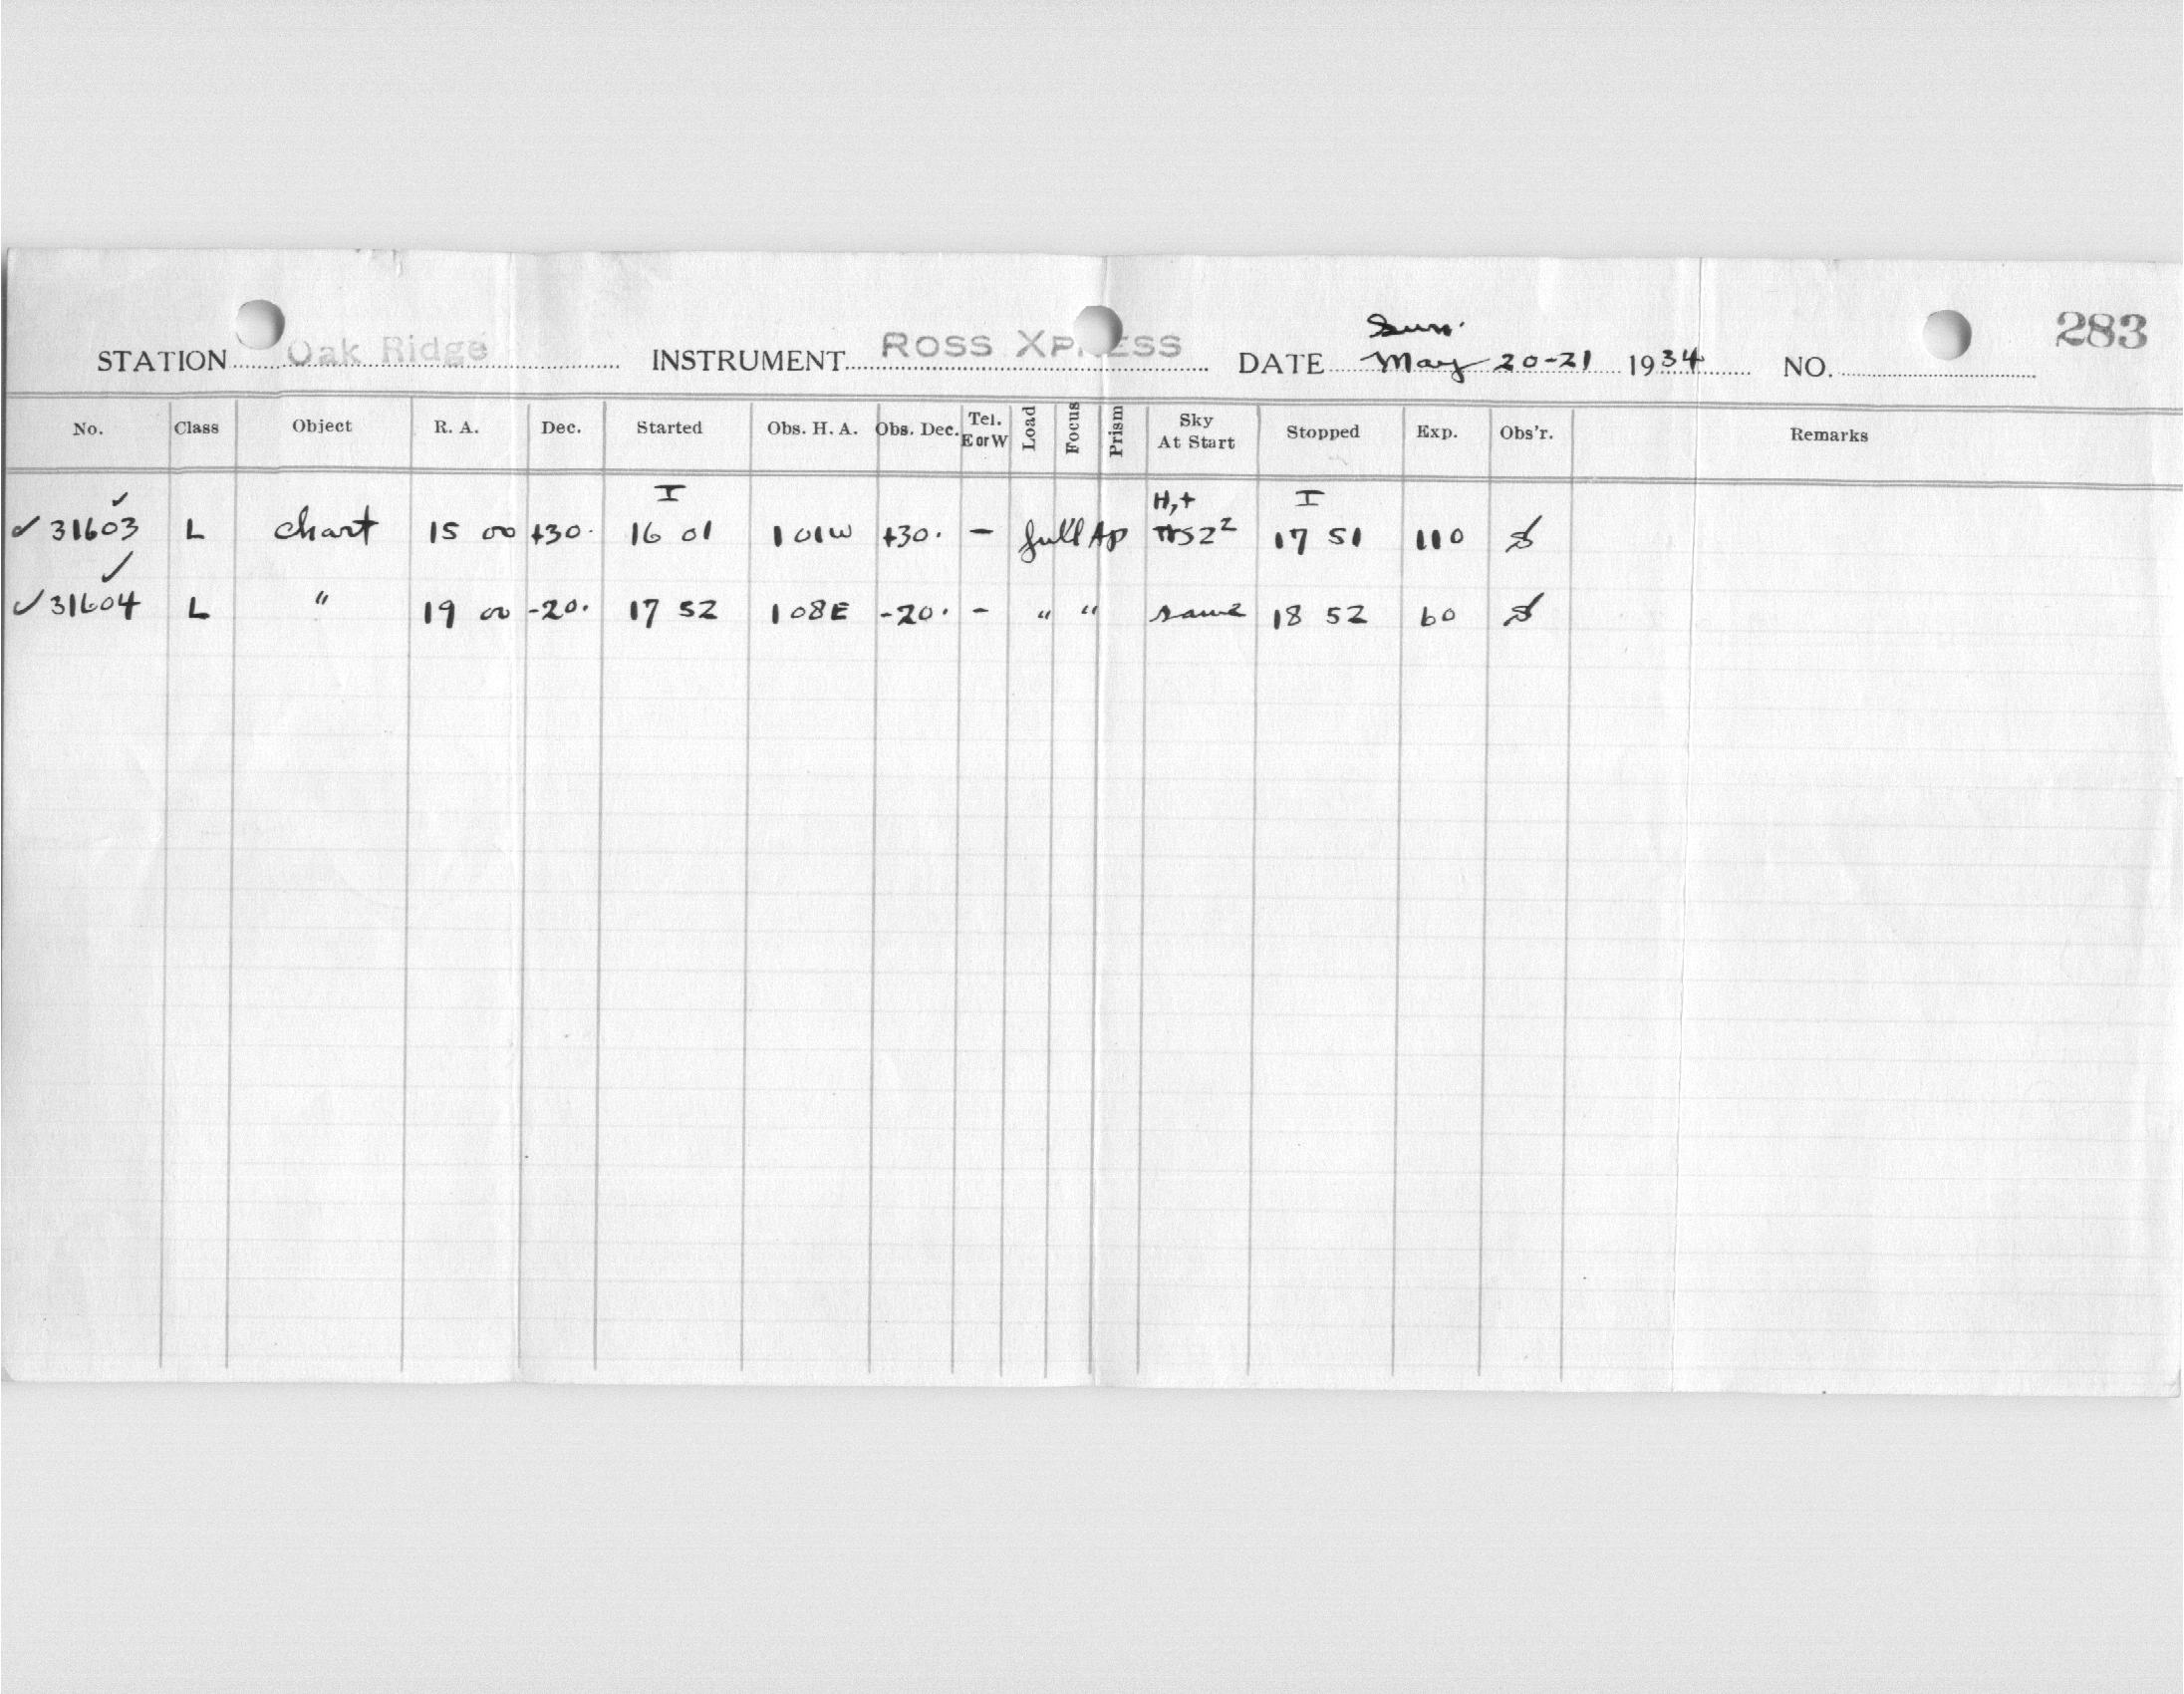 283
Sun.
STATION Oak Ridge INSTRUMENT ROSS XPRESS DATE May 20-21 1934 NO.
No. Class Object R. A. Dec. Started Obs. H. A. Obs. Dec. Tel. E or W Load Focus Prism Sky At Start Stopped Exp. Obs'r. Remarks
I H,+ I
✓ 31603 ✓ L chart 15 00 +30. 16 01 1 01W +30. - full Ap 17 51 110
✓ 31604 ✓ L " 19 00 -20. 17 52 1 08E -20. - " " same 18 52 60